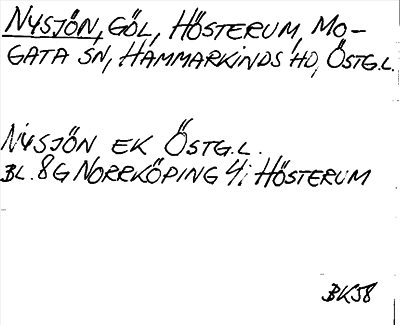 NYSJÖN, GÖL, HÖSTERUM, MO-
GATA SN, HAMMARKINDS HD, ÖSTG.L.
NYSJÖN EK ÖSTG.L.
BL. 8G NORRKÖPING 4i HÖSTERUM
BK58